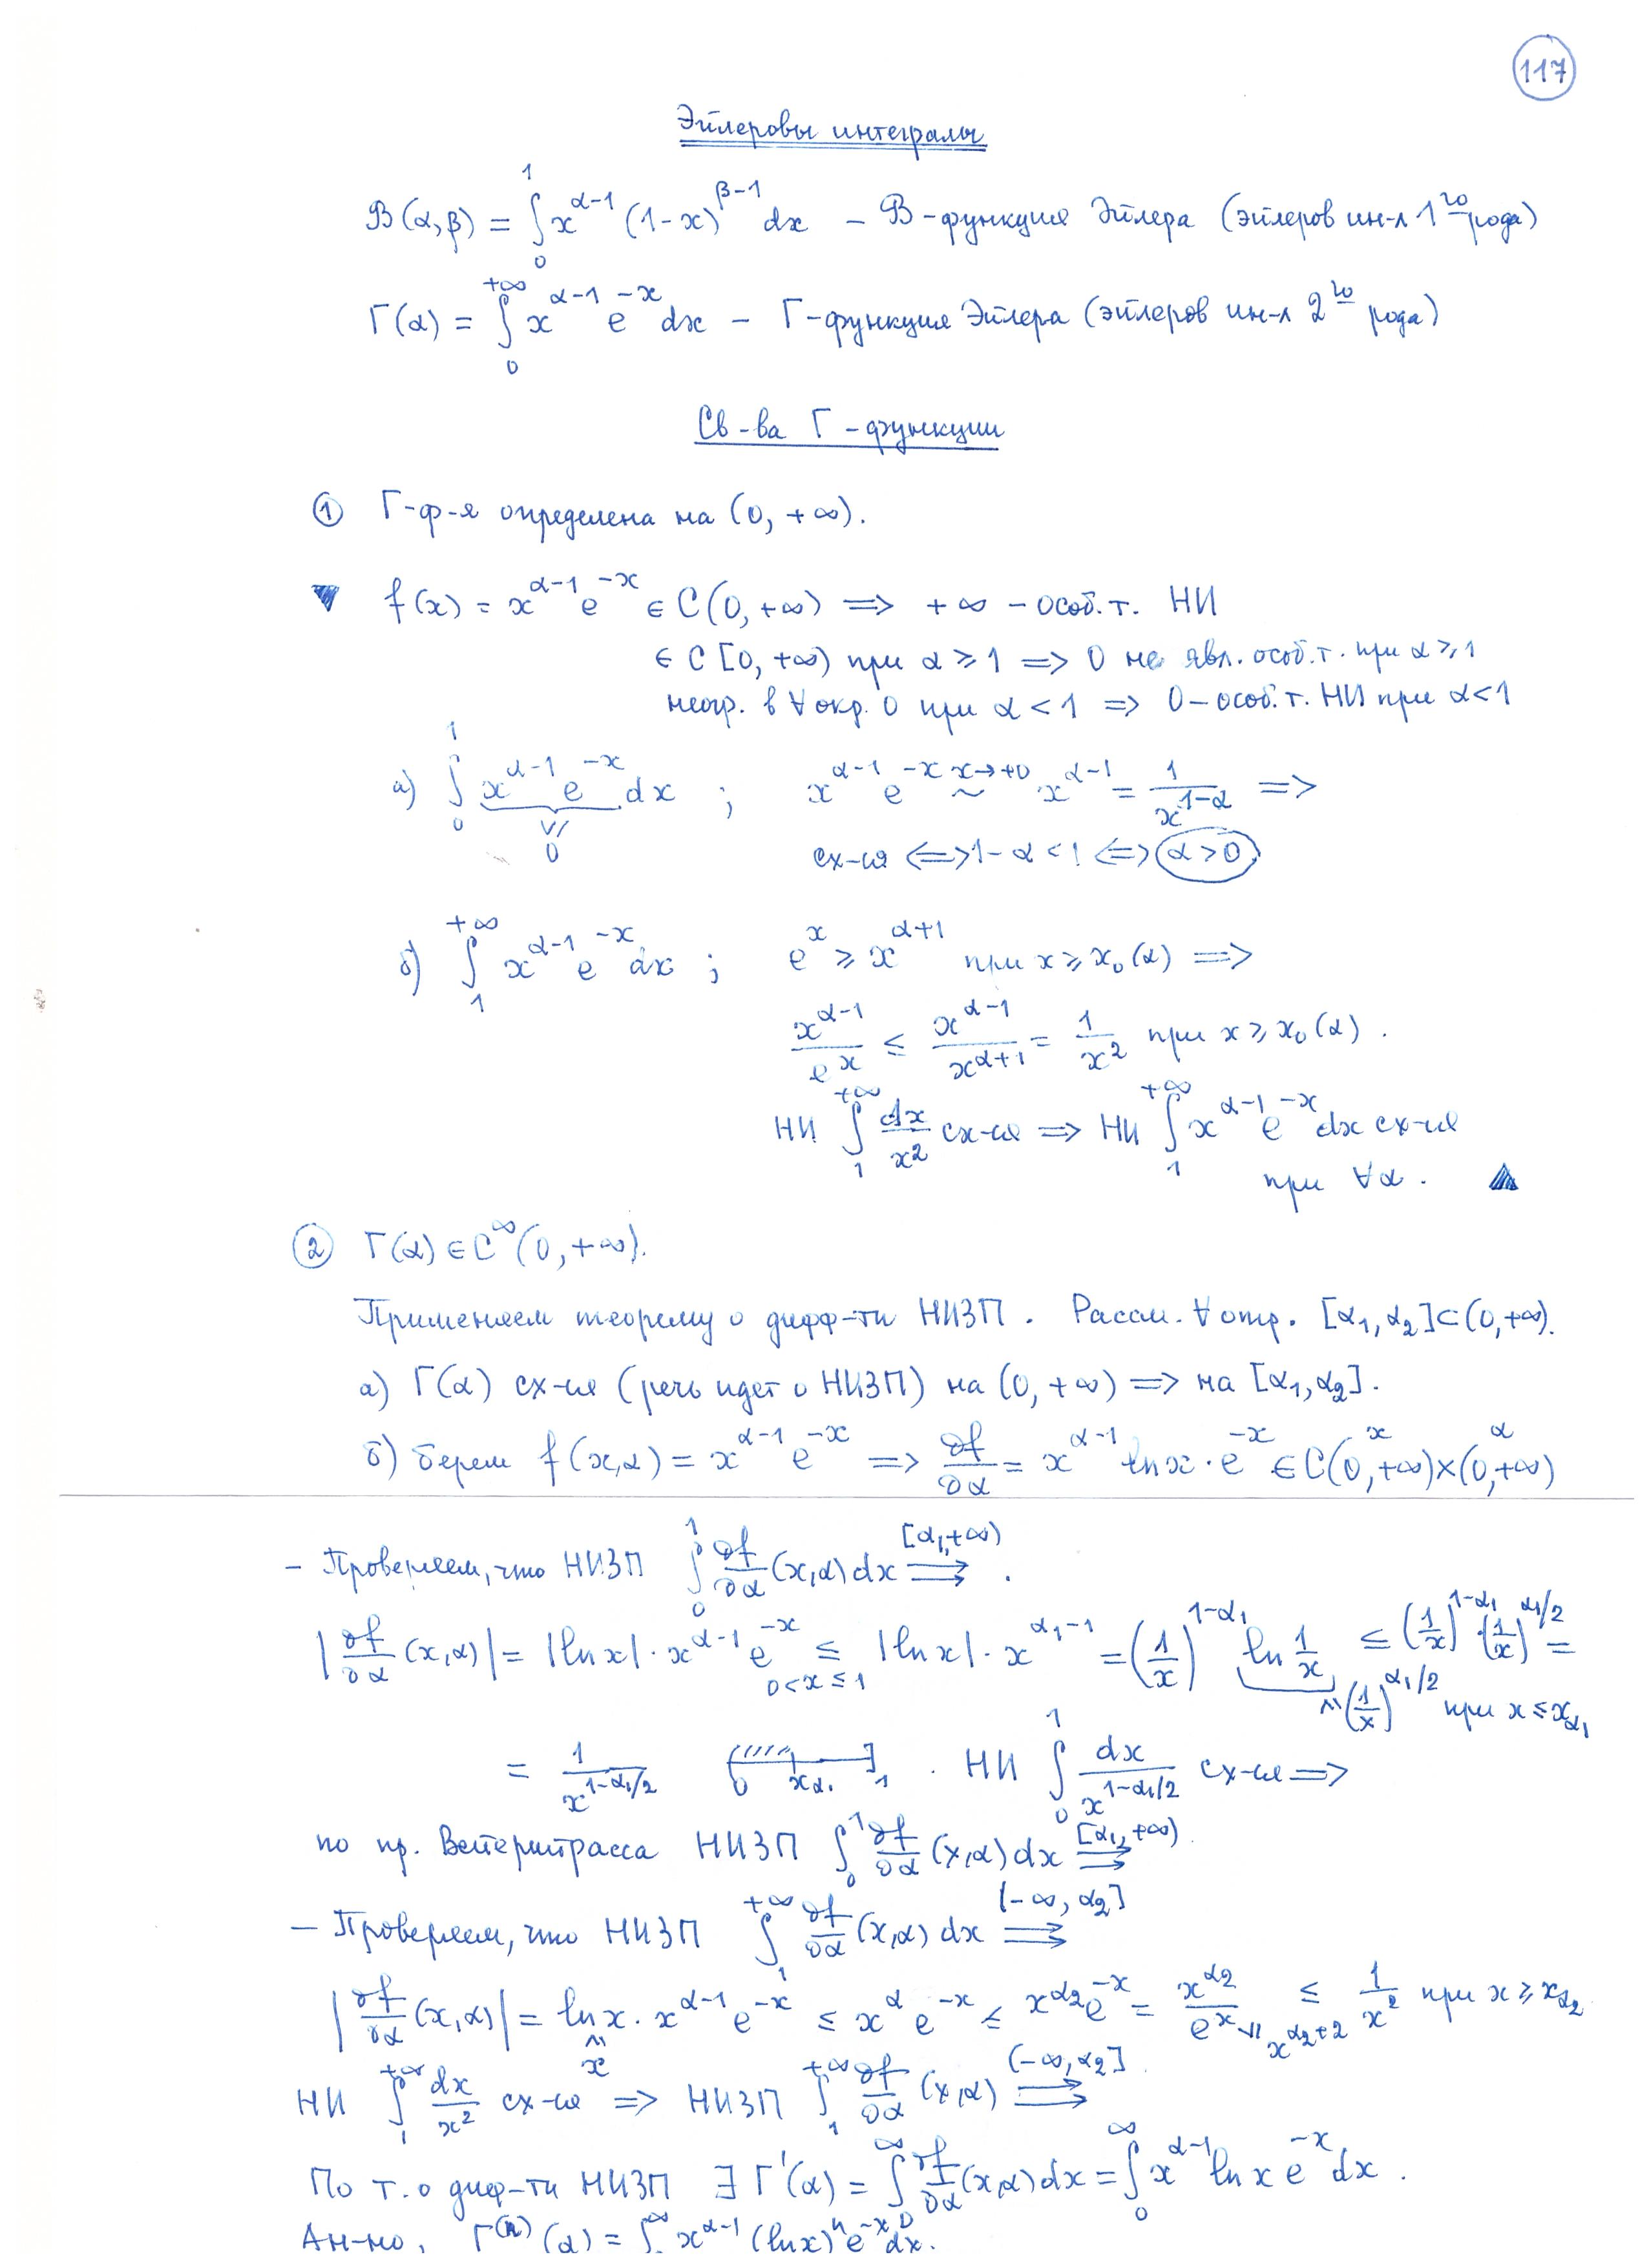 117
Эйлеровы интегралы
B(α,β) = ∫₀¹ x^{α-1} (1-x)^{β-1} dx – B-функция Эйлера (эйлеров ин-л 1го рода)
Γ(α) = ∫₀^{+∞} x^{α-1} e^{-x} dx – Γ-функция Эйлера (эйлеров ин-л 2го рода)
Св-ва Γ-функции
① Γ-ф-я определена на (0, +∞).
▼ f(x) = x^{α-1} e^{-x} ∈ C(0, +∞) ⟹ +∞ – особ. т. НИ
∈ C[0, +∞) при α ⩾ 1 ⟹ 0 не явл. особ. т. при α ⩾ 1
неогр. в ∀ окр. 0 при α < 1 ⟹ 0 – особ. т. НИ при α < 1
а) ∫₀¹ x^{α-1} e^{-x} dx ; x^{α-1} e^{-x} ~ (x→+0) x^{α-1} = 1/x^{1-α} ⟹
⩾ 0 сх-ся ⟺ 1-α < 1 ⟺ α > 0
б) ∫₁^{+∞} x^{α-1} e^{-x} dx ; e^x ⩾ x^{α+1} при x ⩾ x₀(α) ⟹
x^{α-1}/e^x ≤ x^{α-1}/x^{α+1} = 1/x² при x ⩾ x₀(α).
НИ ∫₁^{+∞} dx/x² сх-ся ⟹ НИ ∫₁^{+∞} x^{α-1} e^{-x} dx сх-ся
при ∀α. ▲
② Γ(α) ∈ C^∞(0, +∞).
Применяем теорему о дифф-ти НИЗП. Рассм. ∀ отр. [α₁, α₂] ⊂ (0, +∞).
а) Γ(α) сх-ся (речь идет о НИЗП) на (0, +∞) ⟹ на [α₁, α₂].
б) берем f(x,α) = x^{α-1} e^{-x} ⟹ ∂f/∂α = x^{α-1} ln x · e^{-x} ∈ C(0, +∞)×(0, +∞)
– Проверяем, что НИЗП ∫₀¹ ∂f/∂α (x,α) dx ⇉ [α₁, +∞).
|∂f/∂α (x,α)| = |ln x| · x^{α-1} e^{-x} ≤ (0<x≤1) |ln x| · x^{α₁-1} = (1/x)^{1-α₁} ln 1/x ≤ (1/x)^{1-α₁} · (1/x)^{α₁/2} =
≤ (1/x)^{α₁/2} при x ≤ x_{α₁}
= 1/x^{1-α₁/2} 0 x_{α₁} 1 . НИ ∫₀¹ dx/x^{1-α₁/2} сх-ся ⟹
по пр. Вейерштрасса НИЗП ∫₀¹ ∂f/∂α (x,α) dx ⇉ [α₁, +∞).
– Проверяем, что НИЗП ∫₁^{+∞} ∂f/∂α (x,α) dx ⇉ (-∞, α₂]
|∂f/∂α (x,α)| = ln x · x^{α-1} e^{-x} ≤ x^α e^{-x} ≤ x^{α₂} e^{-x} = x^{α₂}/e^x ≤ 1/x² при x ⩾ x_{α₂}
≤ x ⩾ x^{α₂+2}
НИ ∫₁^{+∞} dx/x² сх-ся ⟹ НИЗП ∫₁^{+∞} ∂f/∂α (x,α) ⇉ (-∞, α₂].
По т. о диф-ти НИЗП ∃ Γ'(α) = ∫₀^∞ ∂f/∂α (x,α) dx = ∫₀^∞ x^{α-1} ln x e^{-x} dx.
Ан-но, Γ^{(n)}(α) = ∫₀^∞ x^{α-1} (ln x)^n e^{-x} dx.